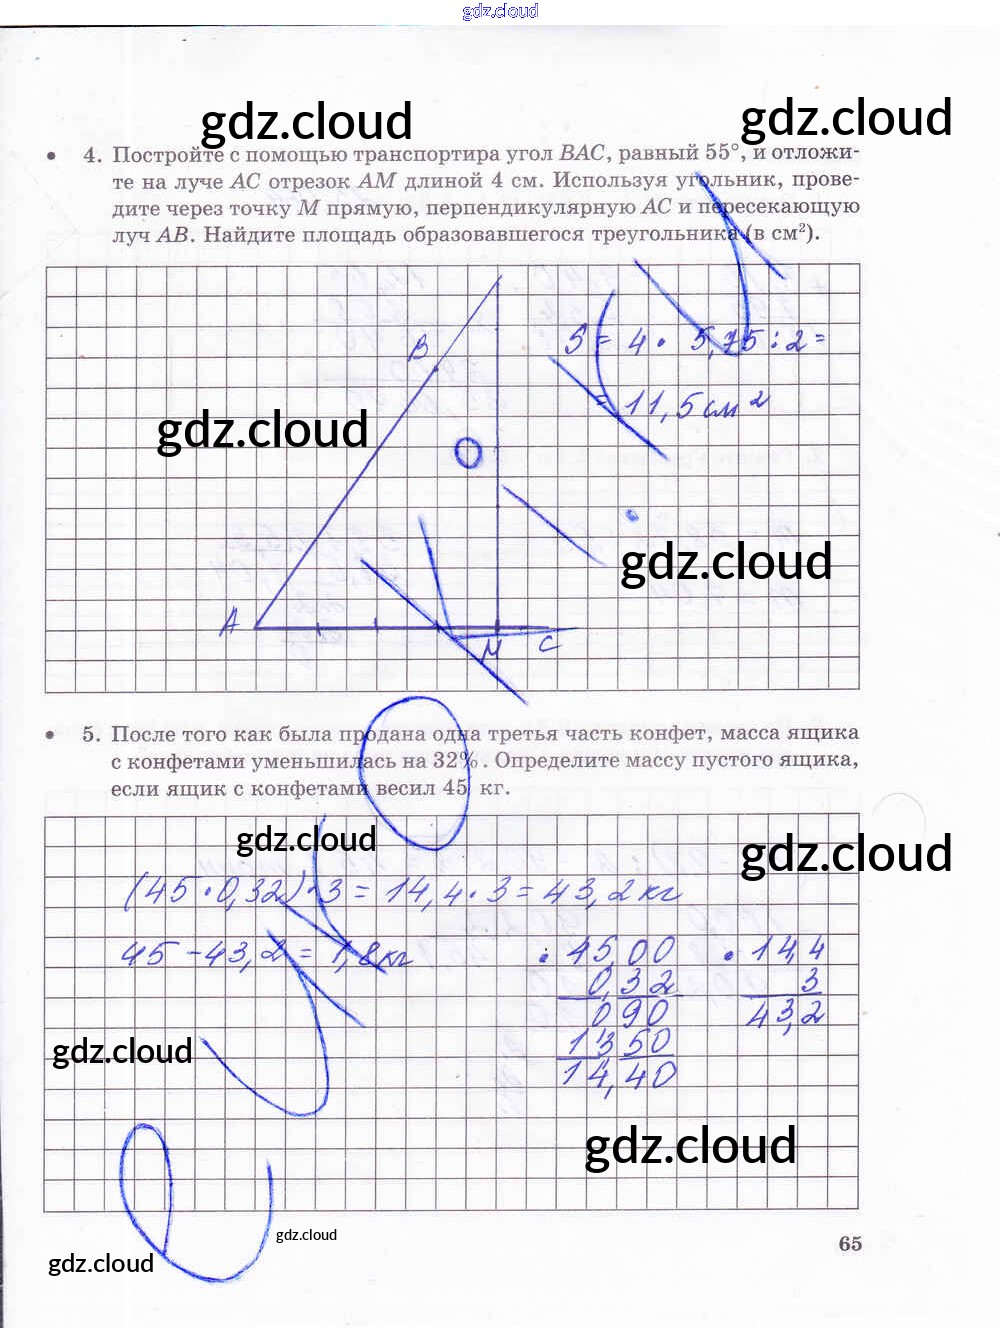 gdz.cloud
gdz.cloud
gdz.cloud
4. Постройте с помощью транспортира угол BAC, равный 55°, и отложи-
те на луче AC отрезок AM длиной 4 см. Используя угольник, прове-
дите через точку M прямую, перпендикулярную AC и пересекающую
луч AB. Найдите площадь образовавшегося треугольника (в см²).
B
S = 4 · 5,75 : 2 =
= 11,5 см²
gdz.cloud
gdz.cloud
A
M
C
5. После того как была продана одна третья часть конфет, масса ящика
с конфетами уменьшилась на 32%. Определите массу пустого ящика,
если ящик с конфетами весил 45 кг.
gdz.cloud
gdz.cloud
(45 · 0,32) · 3 = 14,4 · 3 = 43,2 кг
45 - 43,2 = 1,8 кг
· 45,00
0,32
090
1350
14,40
· 14,4
3
43,2
gdz.cloud
gdz.cloud
gdz.cloud
gdz.cloud
65